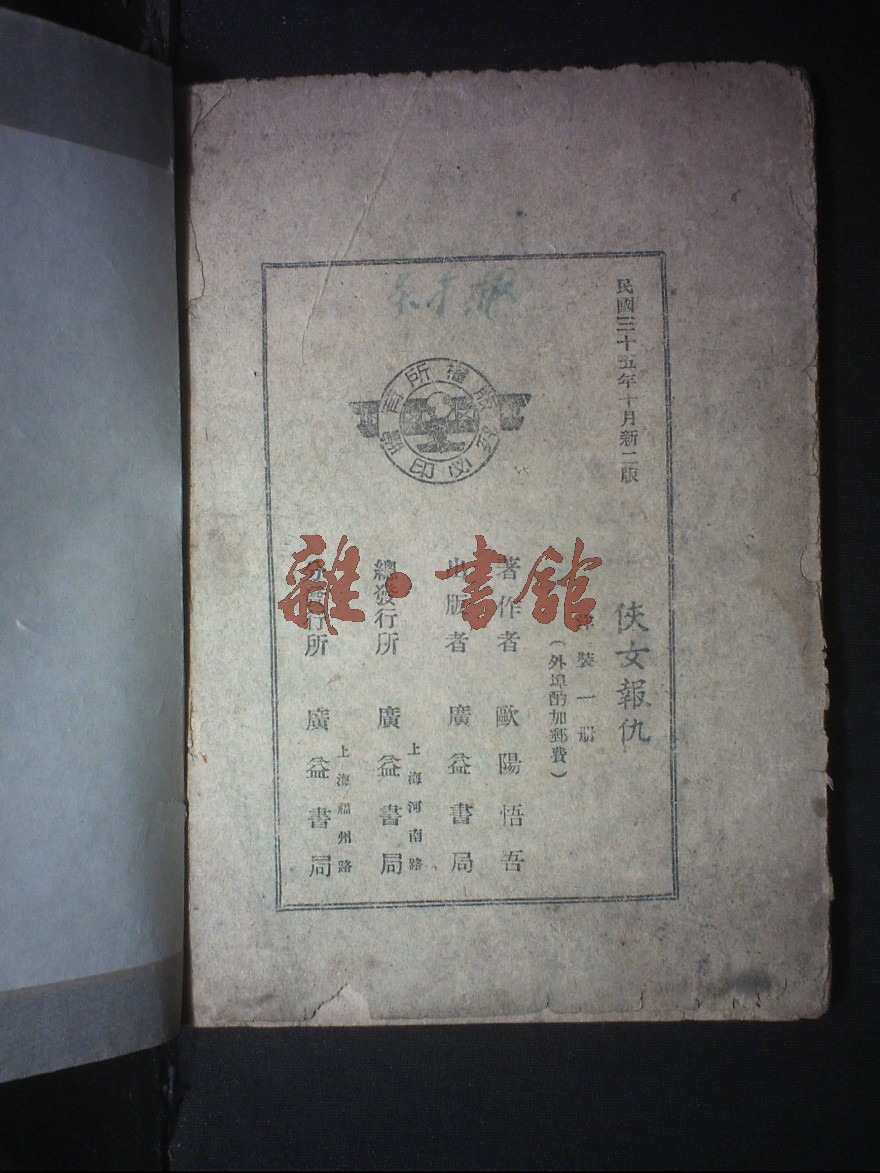 民國三十五年十月新二版
俠女報仇
洋裝一册
（外埠酌加郵費）
著作者 歐陽悟吾
出版者 廣益書局
總發行所 上海河南路 廣益書局
分發行所 上海福州路 廣益書局
有所權版
究必印翻
雜·書館